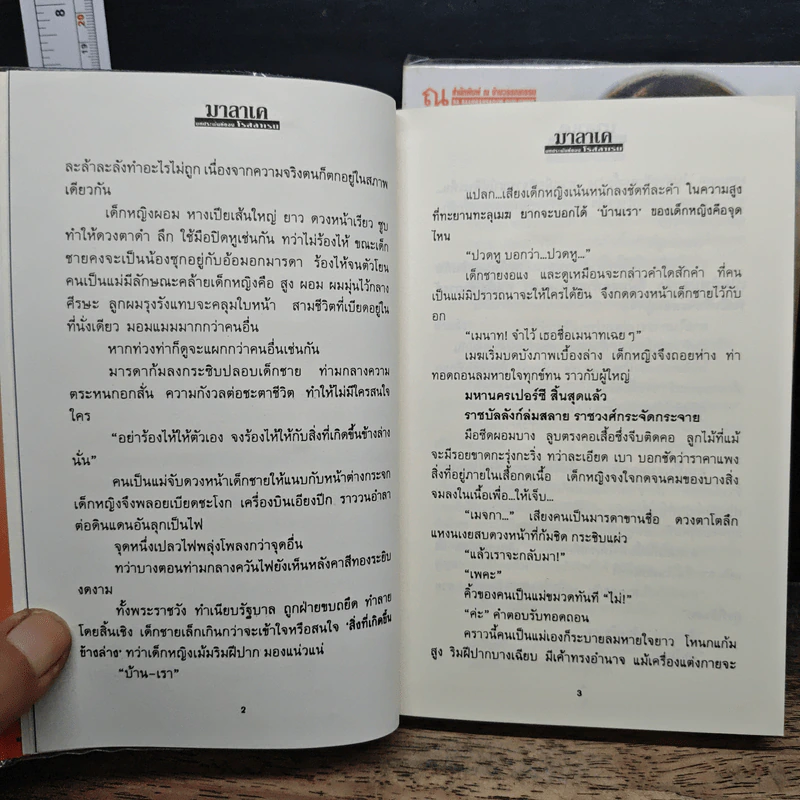 8
20
19
ณ สำนักพิมพ์ ณ บ้านวรรณกรรม
มาลาเค
บทประพันธ์ของ โรสลาเรน
ละล้าละลังทำอะไรไม่ถูก เนื่องจากความจริงตนก็ตกอยู่ในสภาพ
เดียวกัน
เด็กหญิงผอม หางเปียเส้นใหญ่ ยาว ดวงหน้าเรียว ซูบ
ทำให้ดวงตาดำ ลึก ใช้มือปิดหูเช่นกัน ทว่าไม่ร้องไห้ ขณะเด็ก
ชายคงจะเป็นน้องซุกอยู่กับอ้อมอกมารดา ร้องไห้จนตัวโยน
คนเป็นแม่มีลักษณะคล้ายเด็กหญิงคือ สูง ผอม ผมมุ่นไว้กลาง
ศีรษะ ลูกผมรุงรังแทบจะคลุมใบหน้า สามชีวิตที่เบียดอยู่ใน
ที่นั่งเดียว มอมแมมมากกว่าคนอื่น
หากท่วงท่าก็ดูจะแผกกว่าคนอื่นเช่นกัน
มารดาก้มลงกระซิบปลอบเด็กชาย ท่ามกลางความ
ตระหนกอกสั่น ความกังวลต่อชะตาชีวิต ทำให้ไม่มีใครสนใจ
ใคร
“อย่าร้องไห้ให้ตัวเอง จงร้องไห้ให้กับสิ่งที่เกิดขึ้นข้างล่าง
นั่น”
คนเป็นแม่จับดวงหน้าเด็กชายให้แนบกับหน้าต่างกระจก
เด็กหญิงจึงพลอยเบียดชะโงก เครื่องบินเอียงปีก ราววนอำลา
ต่อดินแดนอันลุกเป็นไฟ
จุดหนึ่งเปลวไฟพลุ่งโพลงกว่าจุดอื่น
ทว่าบางตอนท่ามกลางควันไฟยังเห็นหลังคาสีทองระยิบ
งดงาม
ทั้งพระราชวัง ทำเนียบรัฐบาล ถูกฝ่ายขบถยึด ทำลาย
โดยสิ้นเชิง เด็กชายเล็กเกินกว่าจะเข้าใจหรือสนใจ ‘สิ่งที่เกิดขึ้น
ข้างล่าง’ ทว่าเด็กหญิงเม้มริมฝีปาก มองแน่วแน่
“บ้าน–เรา”
2
มาลาเค
บทประพันธ์ของ โรสลาเรน
แปลก...เสียงเด็กหญิงเน้นหนักลงชัดทีละคำ ในความสูง
ที่ทะยานทะลุเมฆ ยากจะบอกได้ ‘บ้านเรา’ ของเด็กหญิงคือจุด
ไหน
“ปวดหู บอกว่า...ปวดหู...”
เด็กชายงอแง และดูเหมือนจะกล่าวคำใดสักคำ ที่คน
เป็นแม่มิปรารถนาจะให้ใครได้ยิน จึงกดดวงหน้าเด็กชายไว้กับ
อก
“เมนาท! จำไว้ เธอชื่อเมนาทเฉย ๆ”
เมฆเริ่มบดบังภาพเบื้องล่าง เด็กหญิงจึงถอยห่าง ท่า
ทอดถอนลมหายใจทุกข์ทน ราวกับผู้ใหญ่
มหานครเปอร์ซี สิ้นสุดแล้ว
ราชบัลลังก์ล่มสลาย ราชวงศ์กระจัดกระจาย
มือซีดผอมบาง ลูบตรงคอเสื้อซึ่งจีบติดคอ ลูกไม้ที่แม้
จะมีรอยขาดกะรุ่งกะริ่ง ทว่าละเอียด เบา บอกชัดว่าราคาแพง
สิ่งที่อยู่ภายในเสื้อกดเนื้อ เด็กหญิงจงใจกดจนคมของบางสิ่ง
จมลงในเนื้อเพื่อ...ให้เจ็บ...
“เมจกา...” เสียงคนเป็นมารดาขานชื่อ ดวงตาโตลึก
แหงนเงยสบดวงหน้าที่ก้มชิด กระซิบแผ่ว
“แล้วเราจะกลับมา!”
“เพคะ”
คิ้วของคนเป็นแม่ขมวดทันที “ไม่!”
“ค่ะ” คำตอบรับทอดถอน
คราวนี้คนเป็นแม่เองก็ระบายลมหายใจยาว โหนกแก้ม
สูง ริมฝีปากบางเฉียบ มีเค้าทรงอำนาจ แม้เครื่องแต่งกายจะ
3